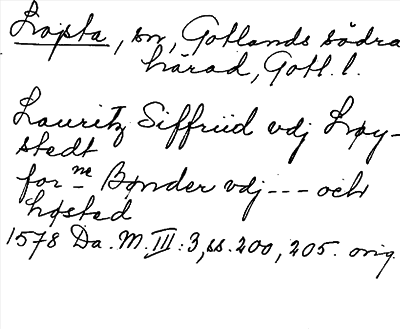 Lojsta, sn, Gotlands södra
härad, Gotl. l.
Lauritz Siffriid vdj Løy-
stedt
for.ne Bønder vdj --- och
høsted
1578 Da. M. III:3, ss. 200, 205. orig.